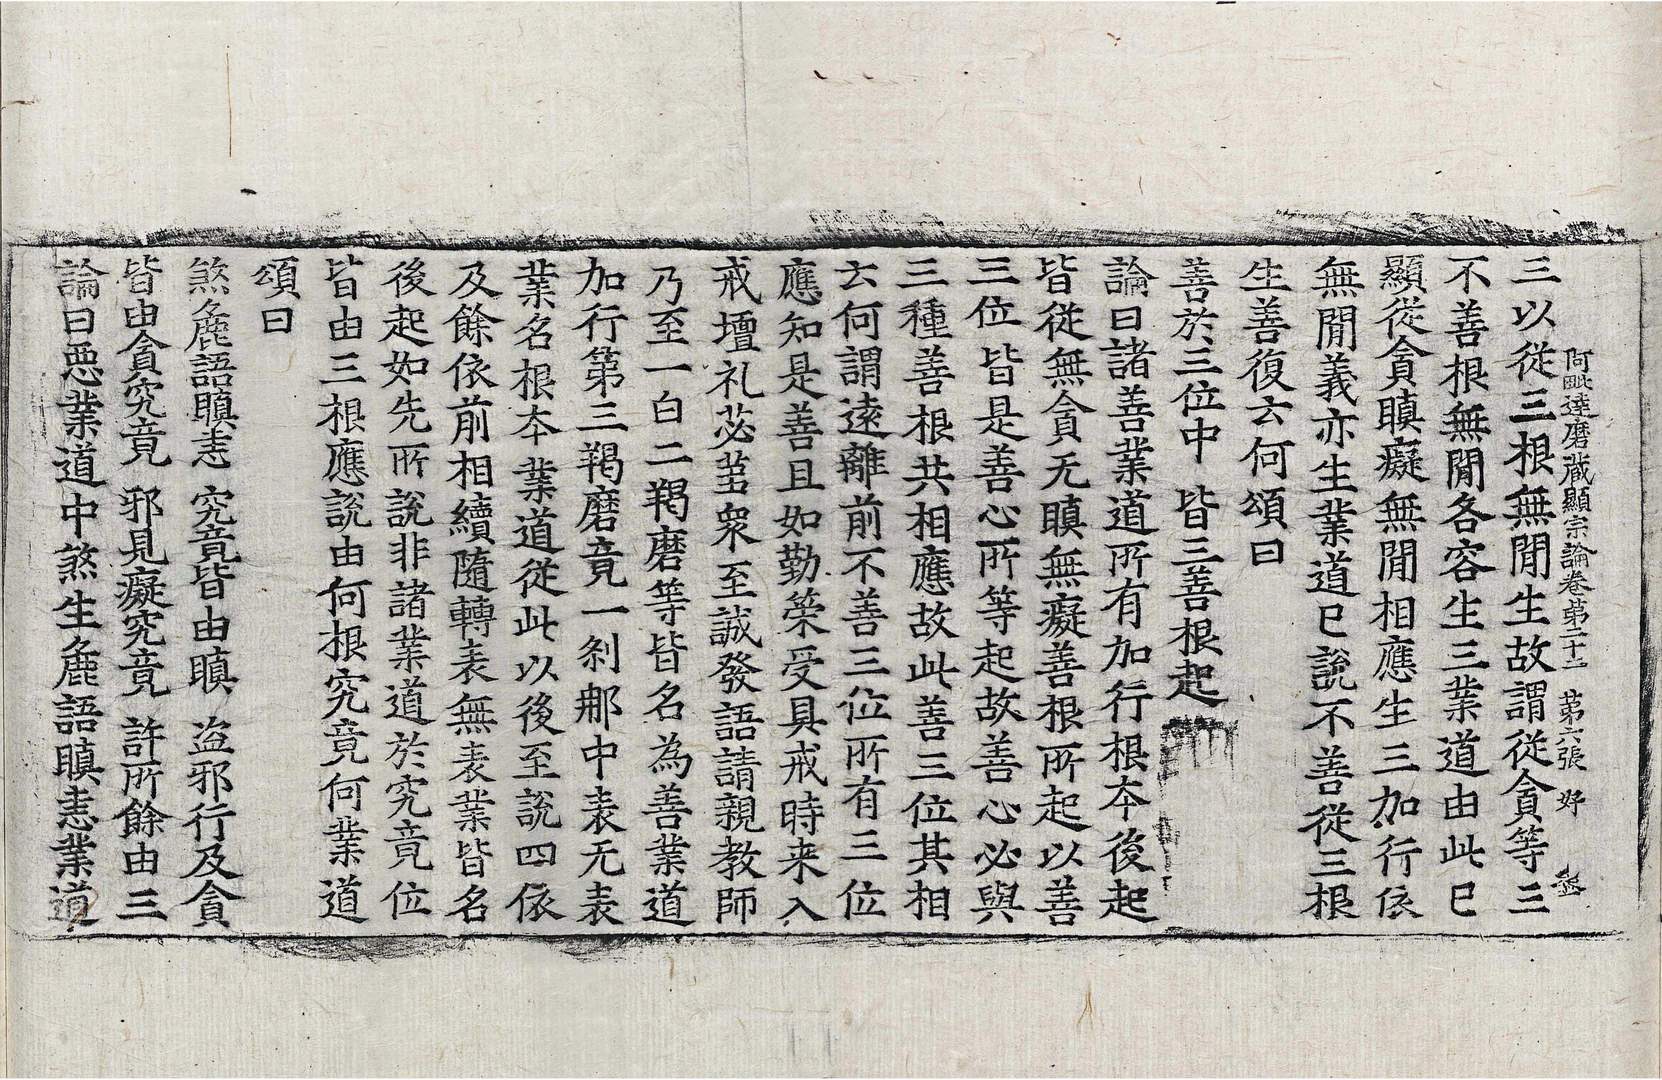 阿毗達磨藏顯宗論卷第二十二 第六張 好
三以從三根無閒生故謂從貪等三
不善根無閒各容生三業道由此已
顯從貪瞋癡無閒相應生三加行依
無閒義亦生業道已說不善從三根
生善復云何頌曰
善於三位中 皆三善根起
論曰諸善業道所有加行根本後起
皆從無貪无瞋無癡善根所起以善
三位皆是善心所等起故善心必與
三種善根共相應故此善三位其相
云何謂遠離前不善三位所有三位
應知是善且如勤策受具戒時来入
戒壇礼苾蒭衆至誠發語請親教師
乃至一白二羯磨等皆名為善業道
加行第三羯磨竟一剎那中表无表
業名根本業道從此以後至說四依
及餘依前相續隨轉表無表業皆名
後起如先所說非諸業道於究竟位
皆由三根應說由何根究竟何業道
頌曰
煞麁語瞋恚 究竟皆由瞋 盜邪行及貪
皆由貪究竟 邪見癡究竟 許所餘由三
論曰惡業道中煞生麁語瞋恚業道